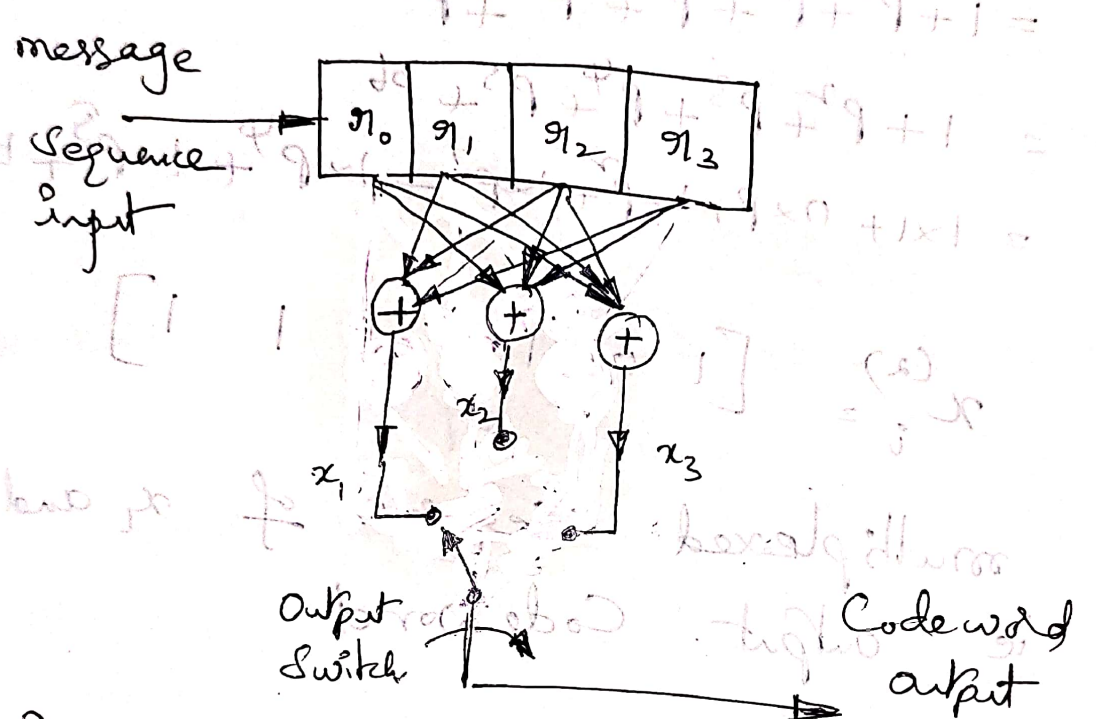 message
sequence
input
r₀ r₁ r₂ r₃
+ + +
x₁
x₂
x₃
Output
Switch
Codeword
output